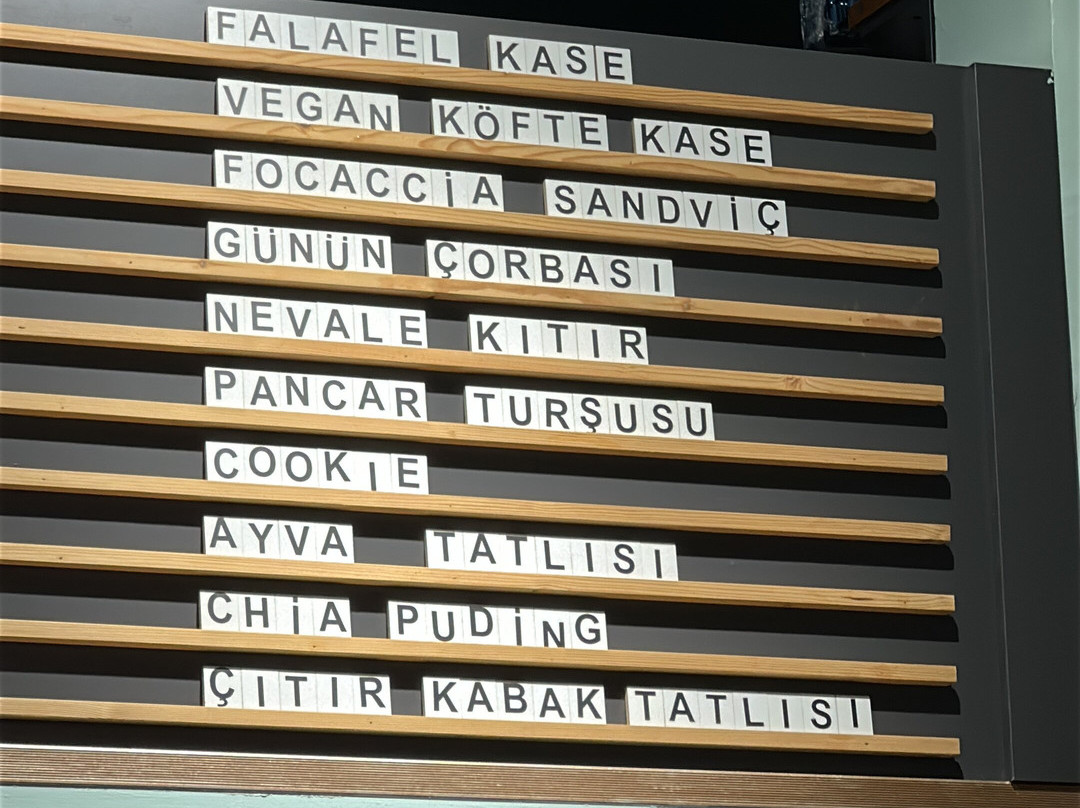 FALAFEL KASE
VEGAN KÖFTE KASE
FOCACCİA SANDVİÇ
GÜNÜN ÇORBASI
NEVALE KITIR
PANCAR TURŞUSU
COOKIE
AYVA TATLISI
CHİA PUDİNG
ÇITIR KABAK TATLISI